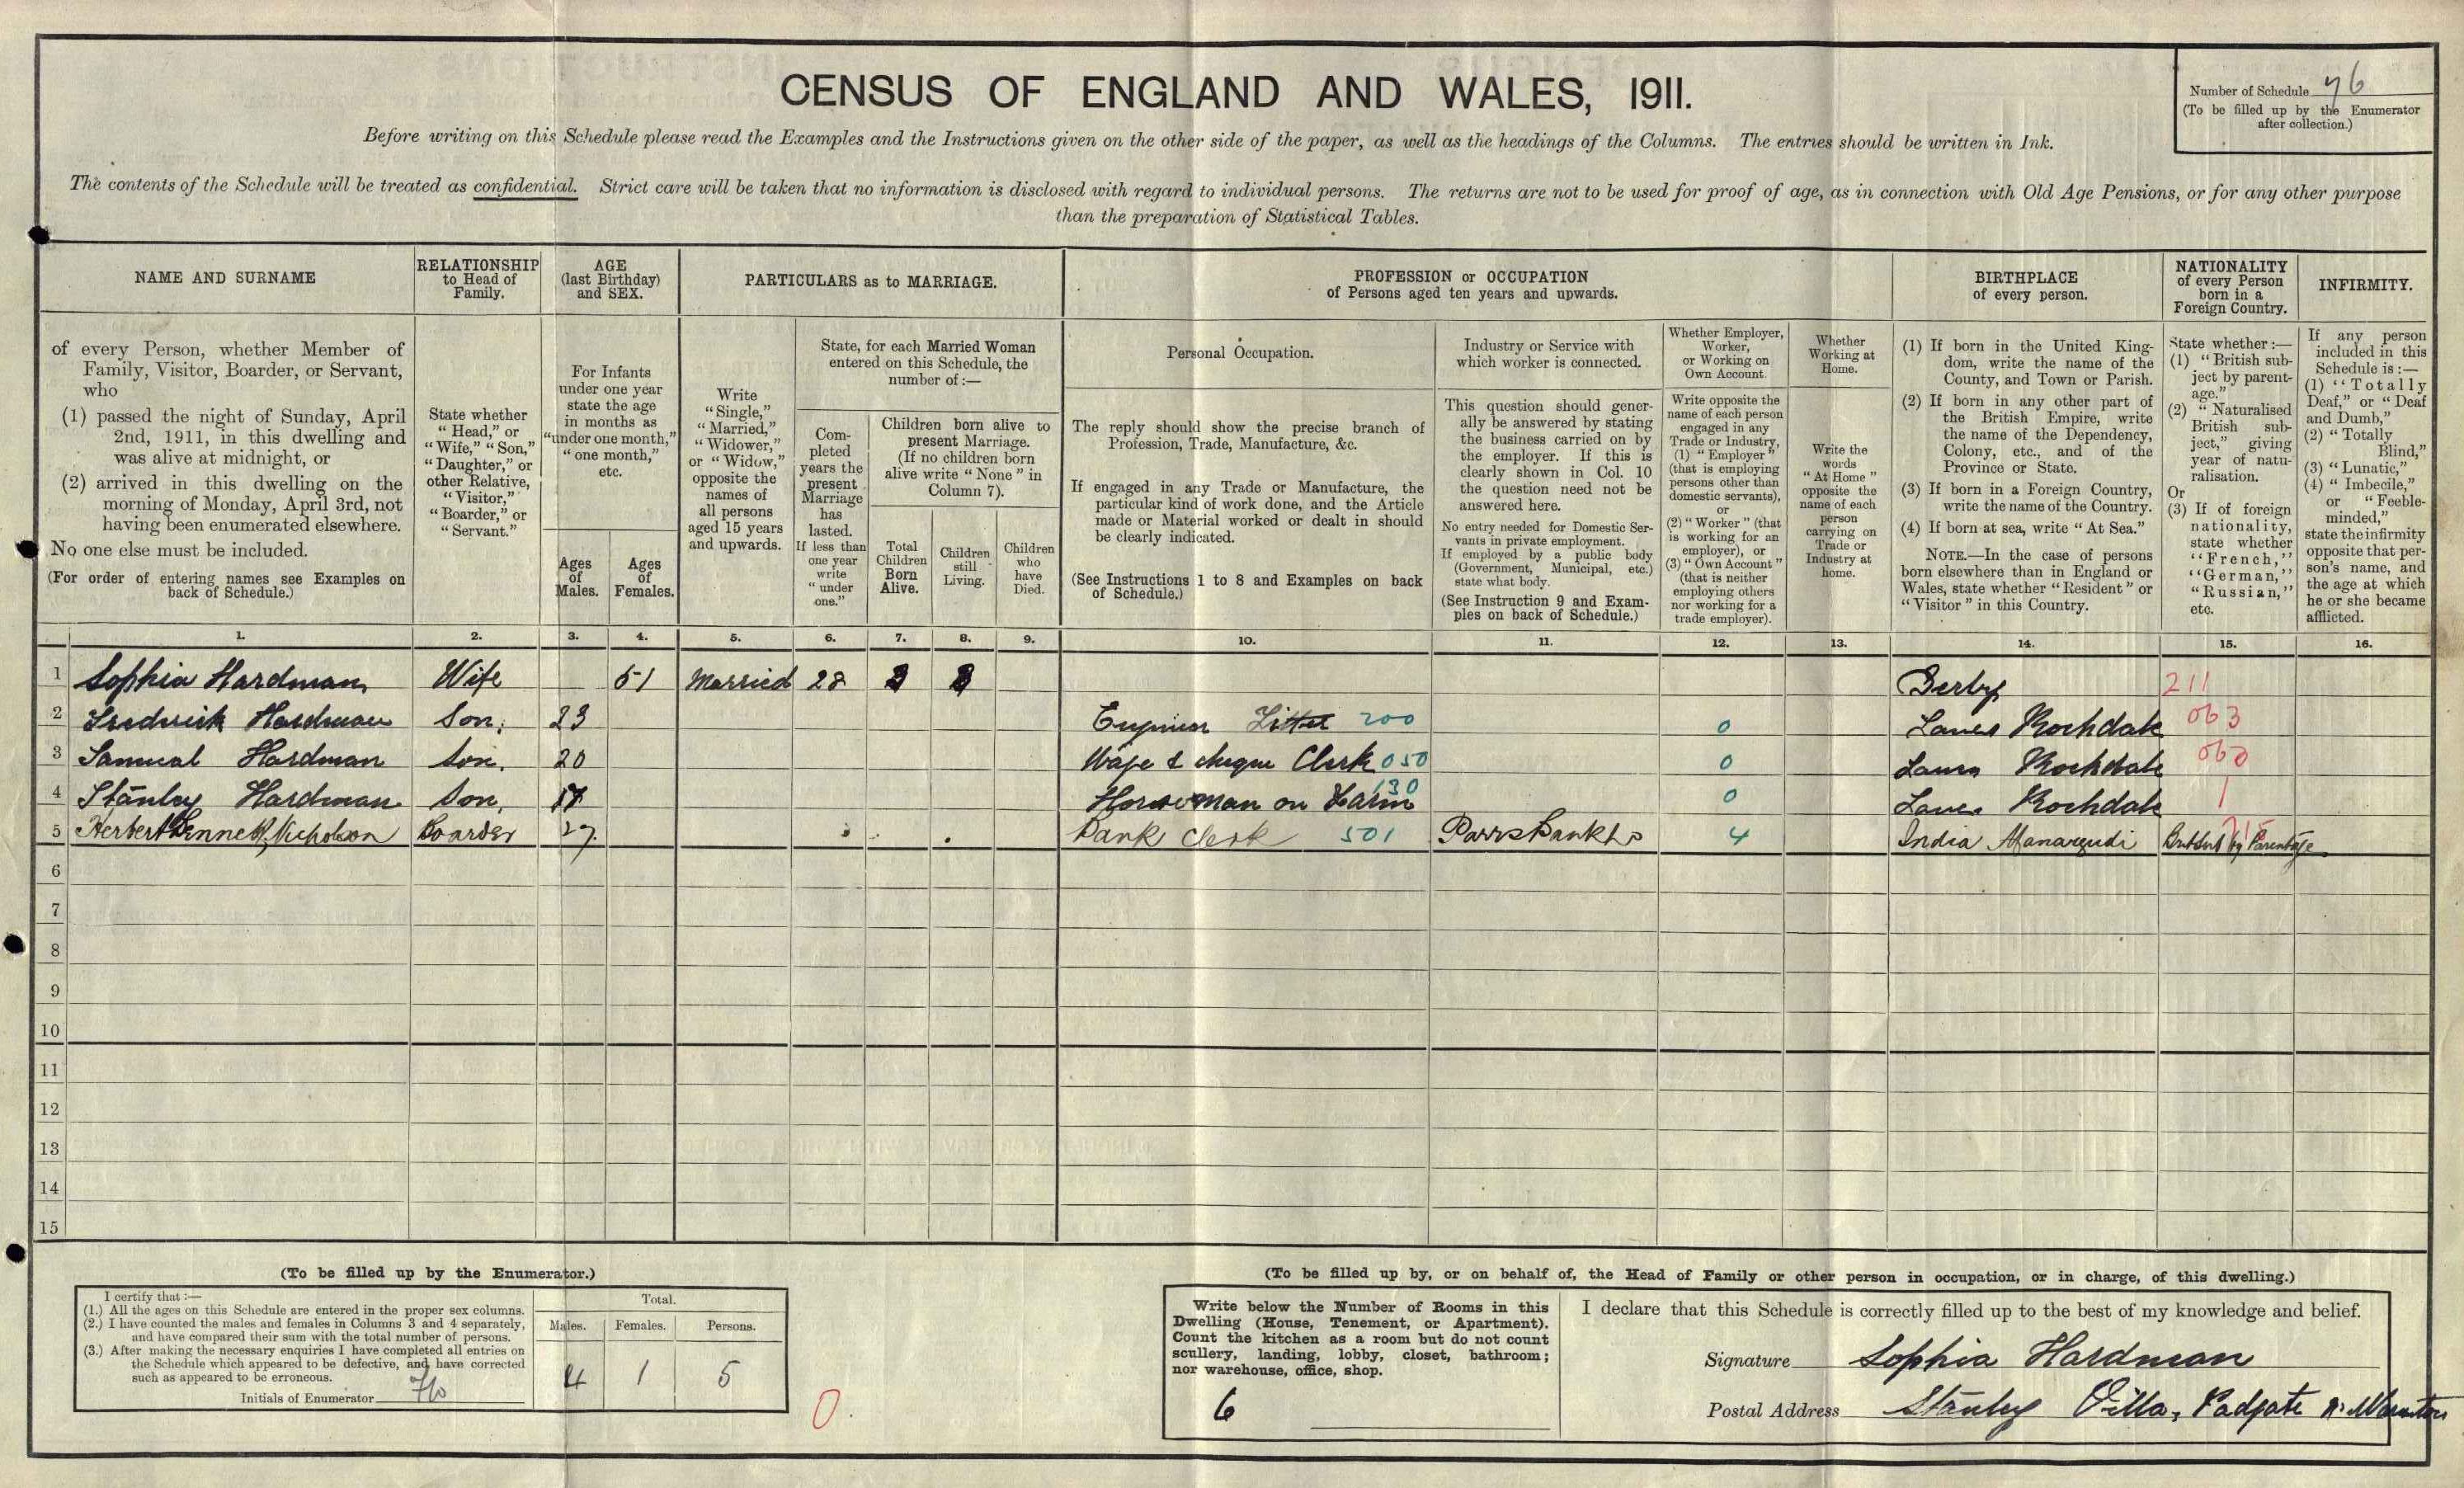 CENSUS OF ENGLAND AND WALES, 1911.
Number of Schedule 76
(To be filled up by the Enumerator
after collection.)
Before writing on this Schedule please read the Examples and the Instructions given on the other side of the paper, as well as the headings of the Columns. The entries should be written in Ink.
The contents of the Schedule will be treated as confidential. Strict care will be taken that no information is disclosed with regard to individual persons. The returns are not to be used for proof of age, as in connection with Old Age Pensions, or for any other purpose
than the preparation of Statistical Tables.
NAME AND SURNAME
of every Person, whether Member of
Family, Visitor, Boarder, or Servant,
who
(1) passed the night of Sunday, April
2nd, 1911, in this dwelling and
was alive at midnight, or
(2) arrived in this dwelling on the
morning of Monday, April 3rd, not
having been enumerated elsewhere.
No one else must be included.
(For order of entering names see Examples on
back of Schedule.)
RELATIONSHIP
to Head of
Family.
State whether
"Head," or
"Wife," "Son,"
"Daughter," or
other Relative,
"Visitor,"
"Boarder," or
"Servant."
AGE
(last Birthday)
and SEX.
For Infants
under one year
state the age
in months as
"under one month,"
"one month,"
etc.
Ages
of
Males.
Ages
of
Females.
PARTICULARS as to MARRIAGE.
Write
"Single,"
"Married,"
"Widower,"
or "Widow,"
opposite the
names of
all persons
aged 15 years
and upwards.
State, for each Married Woman
entered on this Schedule, the
number of :—
Com-
pleted
years the
present
Marriage
has
lasted.
If less than
one year
write
"under
one."
Children born alive to
present Marriage.
(If no children born
alive write "None" in
Column 7).
Total
Children
Born
Alive.
Children
still
Living.
Children
who
have
Died.
PROFESSION or OCCUPATION
of Persons aged ten years and upwards.
Personal Occupation.
The reply should show the precise branch of
Profession, Trade, Manufacture, &c.
If engaged in any Trade or Manufacture, the
particular kind of work done, and the Article
made or Material worked or dealt in should
be clearly indicated.
(See Instructions 1 to 8 and Examples on back
of Schedule.)
Industry or Service with
which worker is connected.
This question should gener-
ally be answered by stating
the business carried on by
the employer. If this is
clearly shown in Col. 10
the question need not be
answered here.
No entry needed for Domestic Ser-
vants in private employment.
If employed by a public body
(Government, Municipal, etc.)
state what body.
(See Instruction 9 and Exam-
ples on back of Schedule.)
Whether Employer,
Worker,
or Working on
Own Account.
Write opposite the
name of each person
engaged in any
Trade or Industry,
(1) "Employer"
(that is employing
persons other than
domestic servants),
or
(2) "Worker" (that
is working for an
employer), or
(3) "Own Account"
(that is neither
employing others
nor working for a
trade employer).
Whether
Working at
Home.
Write the
words
"At Home"
opposite the
name of each
person
carrying on
Trade or
Industry at
home.
BIRTHPLACE
of every person.
(1) If born in the United King-
dom, write the name of the
County, and Town or Parish.
(2) If born in any other part of
the British Empire, write
the name of the Dependency,
Colony, etc., and of the
Province or State.
(3) If born in a Foreign Country,
write the name of the Country.
(4) If born at sea, write "At Sea."
NOTE.—In the case of persons
born elsewhere than in England or
Wales, state whether "Resident" or
"Visitor" in this Country.
NATIONALITY
of every Person
born in a
Foreign Country.
State whether :—
(1) "British sub-
ject by parent-
age."
(2) "Naturalised
British sub-
ject," giving
year of natu-
ralisation.
Or
(3) If of foreign
nationality,
state whether
"French,"
"German,"
"Russian,"
etc.
INFIRMITY.
If any person
included in this
Schedule is :—
(1) "Totally
Deaf," or "Deaf
and Dumb,"
(2) "Totally
Blind,"
(3) "Lunatic,"
(4) "Imbecile,"
or "Feeble-
minded,"
state the infirmity
opposite that per-
son's name, and
the age at which
he or she became
afflicted.
1. 2. 3. 4. 5. 6. 7. 8. 9. 10. 11. 12. 13. 14. 15. 16.
1 Sophia Hardman Wife 51 Married 28 3 3 Derby 211
2 Frederick Hardman Son, 23 Engineer Fitter 200 0 Lancs Rochdale 063
3 Samual Hardman Son, 20 Wage & cheque Clerk 050 0 Lancs Rochdale 060
4 Stanley Hardman Son, 17 Horseman on Farm 130 0 Lancs Rochdale 1
5 Herbert Bennett Nicholson Boarder 27 Bank Clerk 501 Parrs Bank Ld 4 India Manargudi Brit Sub by Parentage
6
7
8
9
10
11
12
13
14
15
(To be filled up by the Enumerator.)
I certify that :—
(1.) All the ages on this Schedule are entered in the proper sex columns.
(2.) I have counted the males and females in Columns 3 and 4 separately,
and have compared their sum with the total number of persons.
(3.) After making the necessary enquiries I have completed all entries on
the Schedule which appeared to be defective, and have corrected
such as appeared to be erroneous.
Initials of Enumerator
Total.
Males. Females. Persons.
4 1 5
0
(To be filled up by, or on behalf of, the Head of Family or other person in occupation, or in charge, of this dwelling.)
Write below the Number of Rooms in this
Dwelling (House, Tenement, or Apartment).
Count the kitchen as a room but do not count
scullery, landing, lobby, closet, bathroom;
nor warehouse, office, shop.
6
I declare that this Schedule is correctly filled up to the best of my knowledge and belief.
Signature Sophia Hardman
Postal Address Stanley Villa, Padgate Nr Warrington